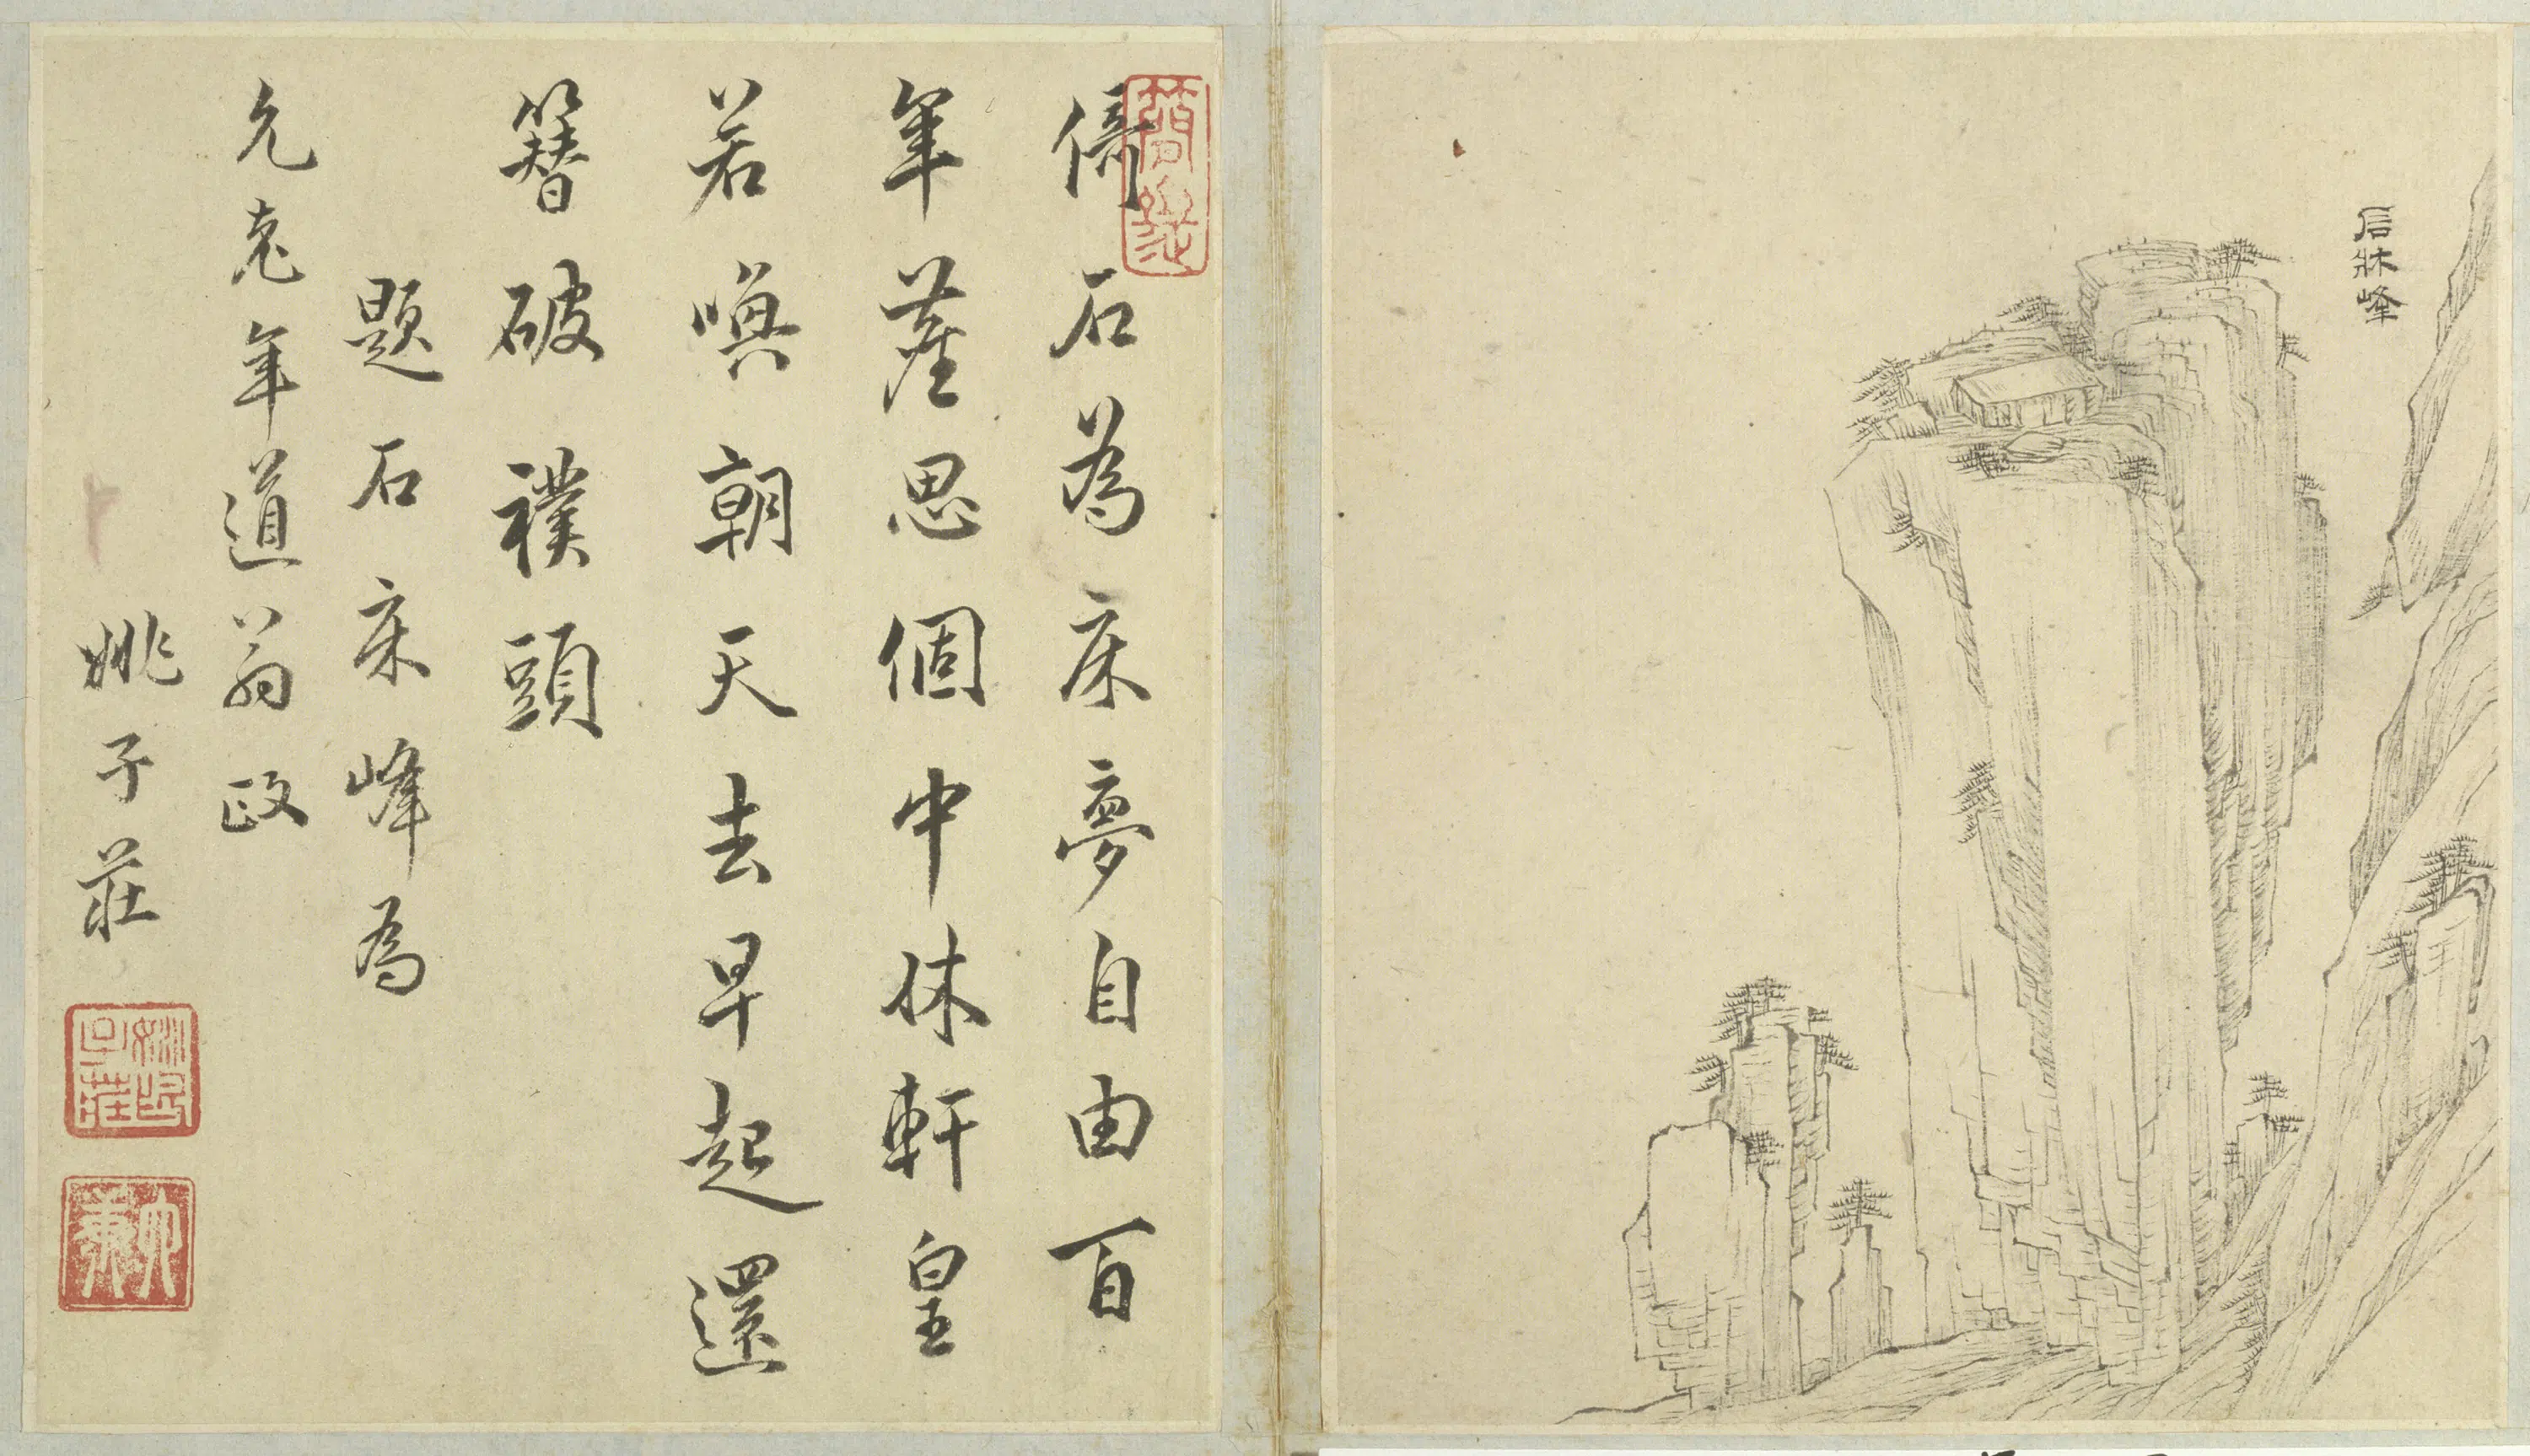 石牀峰
倚石為床夢自由百
年塵思個中休軒皇
若喚朝天去早起還
簪破襆頭
題石床峰為
允老年道翁政
姚子莊
姚子莊印